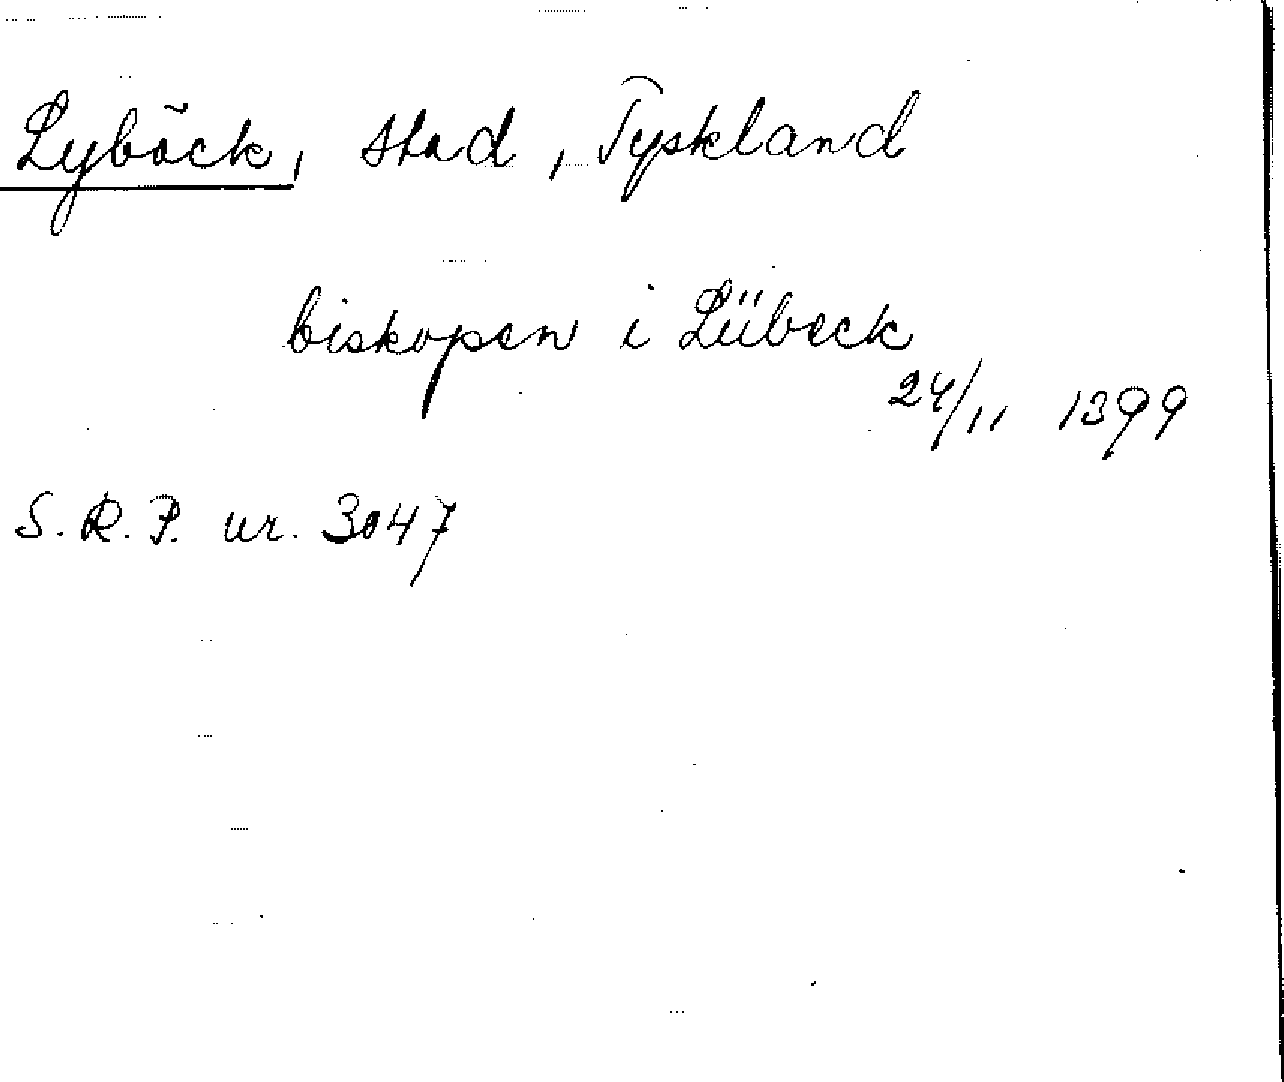 Lyböck, stad, Tyskland
biskopen i Lübeck
24/11 1399
S.R.P. nr. 3047